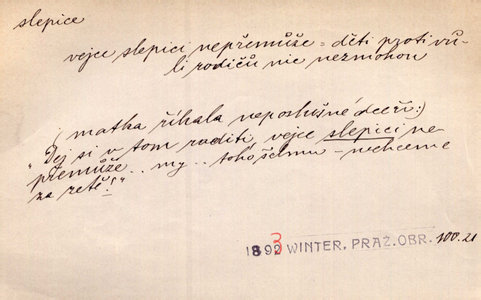 slepice
vejce slepici nepřemůže = děti proti vů-
li rodičů nic nezmohou
(matka říkala neposlušné dceři:)
"Dej si v tom raditi, vejce slepici ne
přemůže... my.. toho šelmu - nechceme
za zetě!"
1893 WINTER. PRAŽ. OBR. 100.21